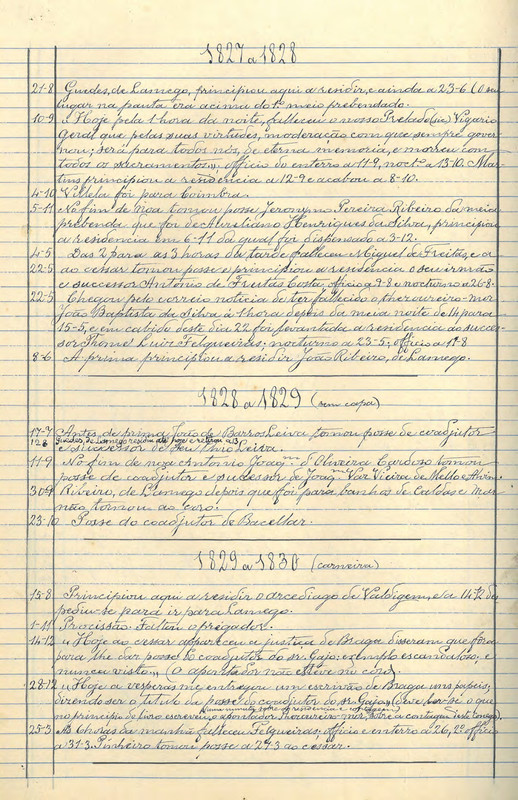 1827 a 1828
21-8 Guedes, de Lamego, principiou aqui a residir, e ainda a 23-6 (O seu
lugar na pauta era acima do 1º meio prebendado.
10-9 „ Hoje pela 1 hora da noite, falleceu o nosso Prelado (sic) Vigario
Geral que pelas suas virtudes, moderação com que sempre gover-
nou; será para todos nós, de eterna memoria, e morreu com
todos os sacramentos „; officio do enterro a 11-9, noct.º a 13-10. Mar-
tins principiou a residencia a 12-9 e acabou a 8-10.
4-10 Villela foi para Coimbra.
5-11 No fim de Noa tomou posse Jeronymo Pereira Ribeiro da meia
prebenda que foi de Aureliano Henriques da Silva, principiou
a residencia em 6-11 da qual foi dispensado a 3-12.
4-5 Das 2 para as 3 horas da tarde falleceu Miguel de Freitas, e a
22-5 ao cessar tomou posse e principiou a residencia o seu irmão
e successor Antonio de Freitas Costa, officio a 9-8 e nocturno a 26-8.
22-5 Chegou pelo correio noticia de ter fallecido o thesoureiro-mor
João Baptista da Silva á 1 hora depois da meia noite de 14 para
15-5, e em cabido deste dia 22 foi levantada a residencia ao succes-
sor Thomé Luiz Felgueiras, nocturno a 23-5; officio a 11-8
8-6 A prima principiou a residir João Ribeiro, de Lamego.
1828 a 1829 (sem capa)
17-7 Antes de prima João de Barros Leiva tomou posse de coadjutor
12-8 Guedes, de Lamego residiu até hoje e retirou a 13
e successor de seu thio Leiva.
11-9 No fim de noa Antonio Joaq.m d'Oliveira Cardoso tomou
posse de coadjutor e sucessor de Joaq.m Vaz Vieira de Mello e Alvim.
30-9 Ribeiro, de Lamego depois que foi para banhos de Caldas e Mar
não tornou ao Coro.
23-10 Posse do coadjutor de Bacellar.
1829 a 1830 (carneira)
15-8 Principiou aqui a residir o arcediago de Valdigem, e a 14-12 des-
pediu-se para ir para Lamego.
1-11 Procissão. Faltou o prégador.
14-12 „ Hoje ao cessar appareceu a justiça de Braga disseram que fora
para lhe dar posse ao coadjutor do sr. Gajo: exemplo escandaloso, e
nunca visto „ (O apontador não esteve no coro)
28-12 „ Hoje a vesperas me entregou um escrivão de Braga uns papeis,
dizendo ser o titulo da posse do coadjutor do sr. Gajo „ (Deve ver-se o que
no principio do livro escreveu o apontador Thesoureiro mor, sobre a contagem deste Conego).
25-3 Ás 6 horas da manhã falleceu Felgueiras; officio e enterro a 26, 2º officio
a 31-3. Pinheiro tomou posse a 29-3 ao cessar.